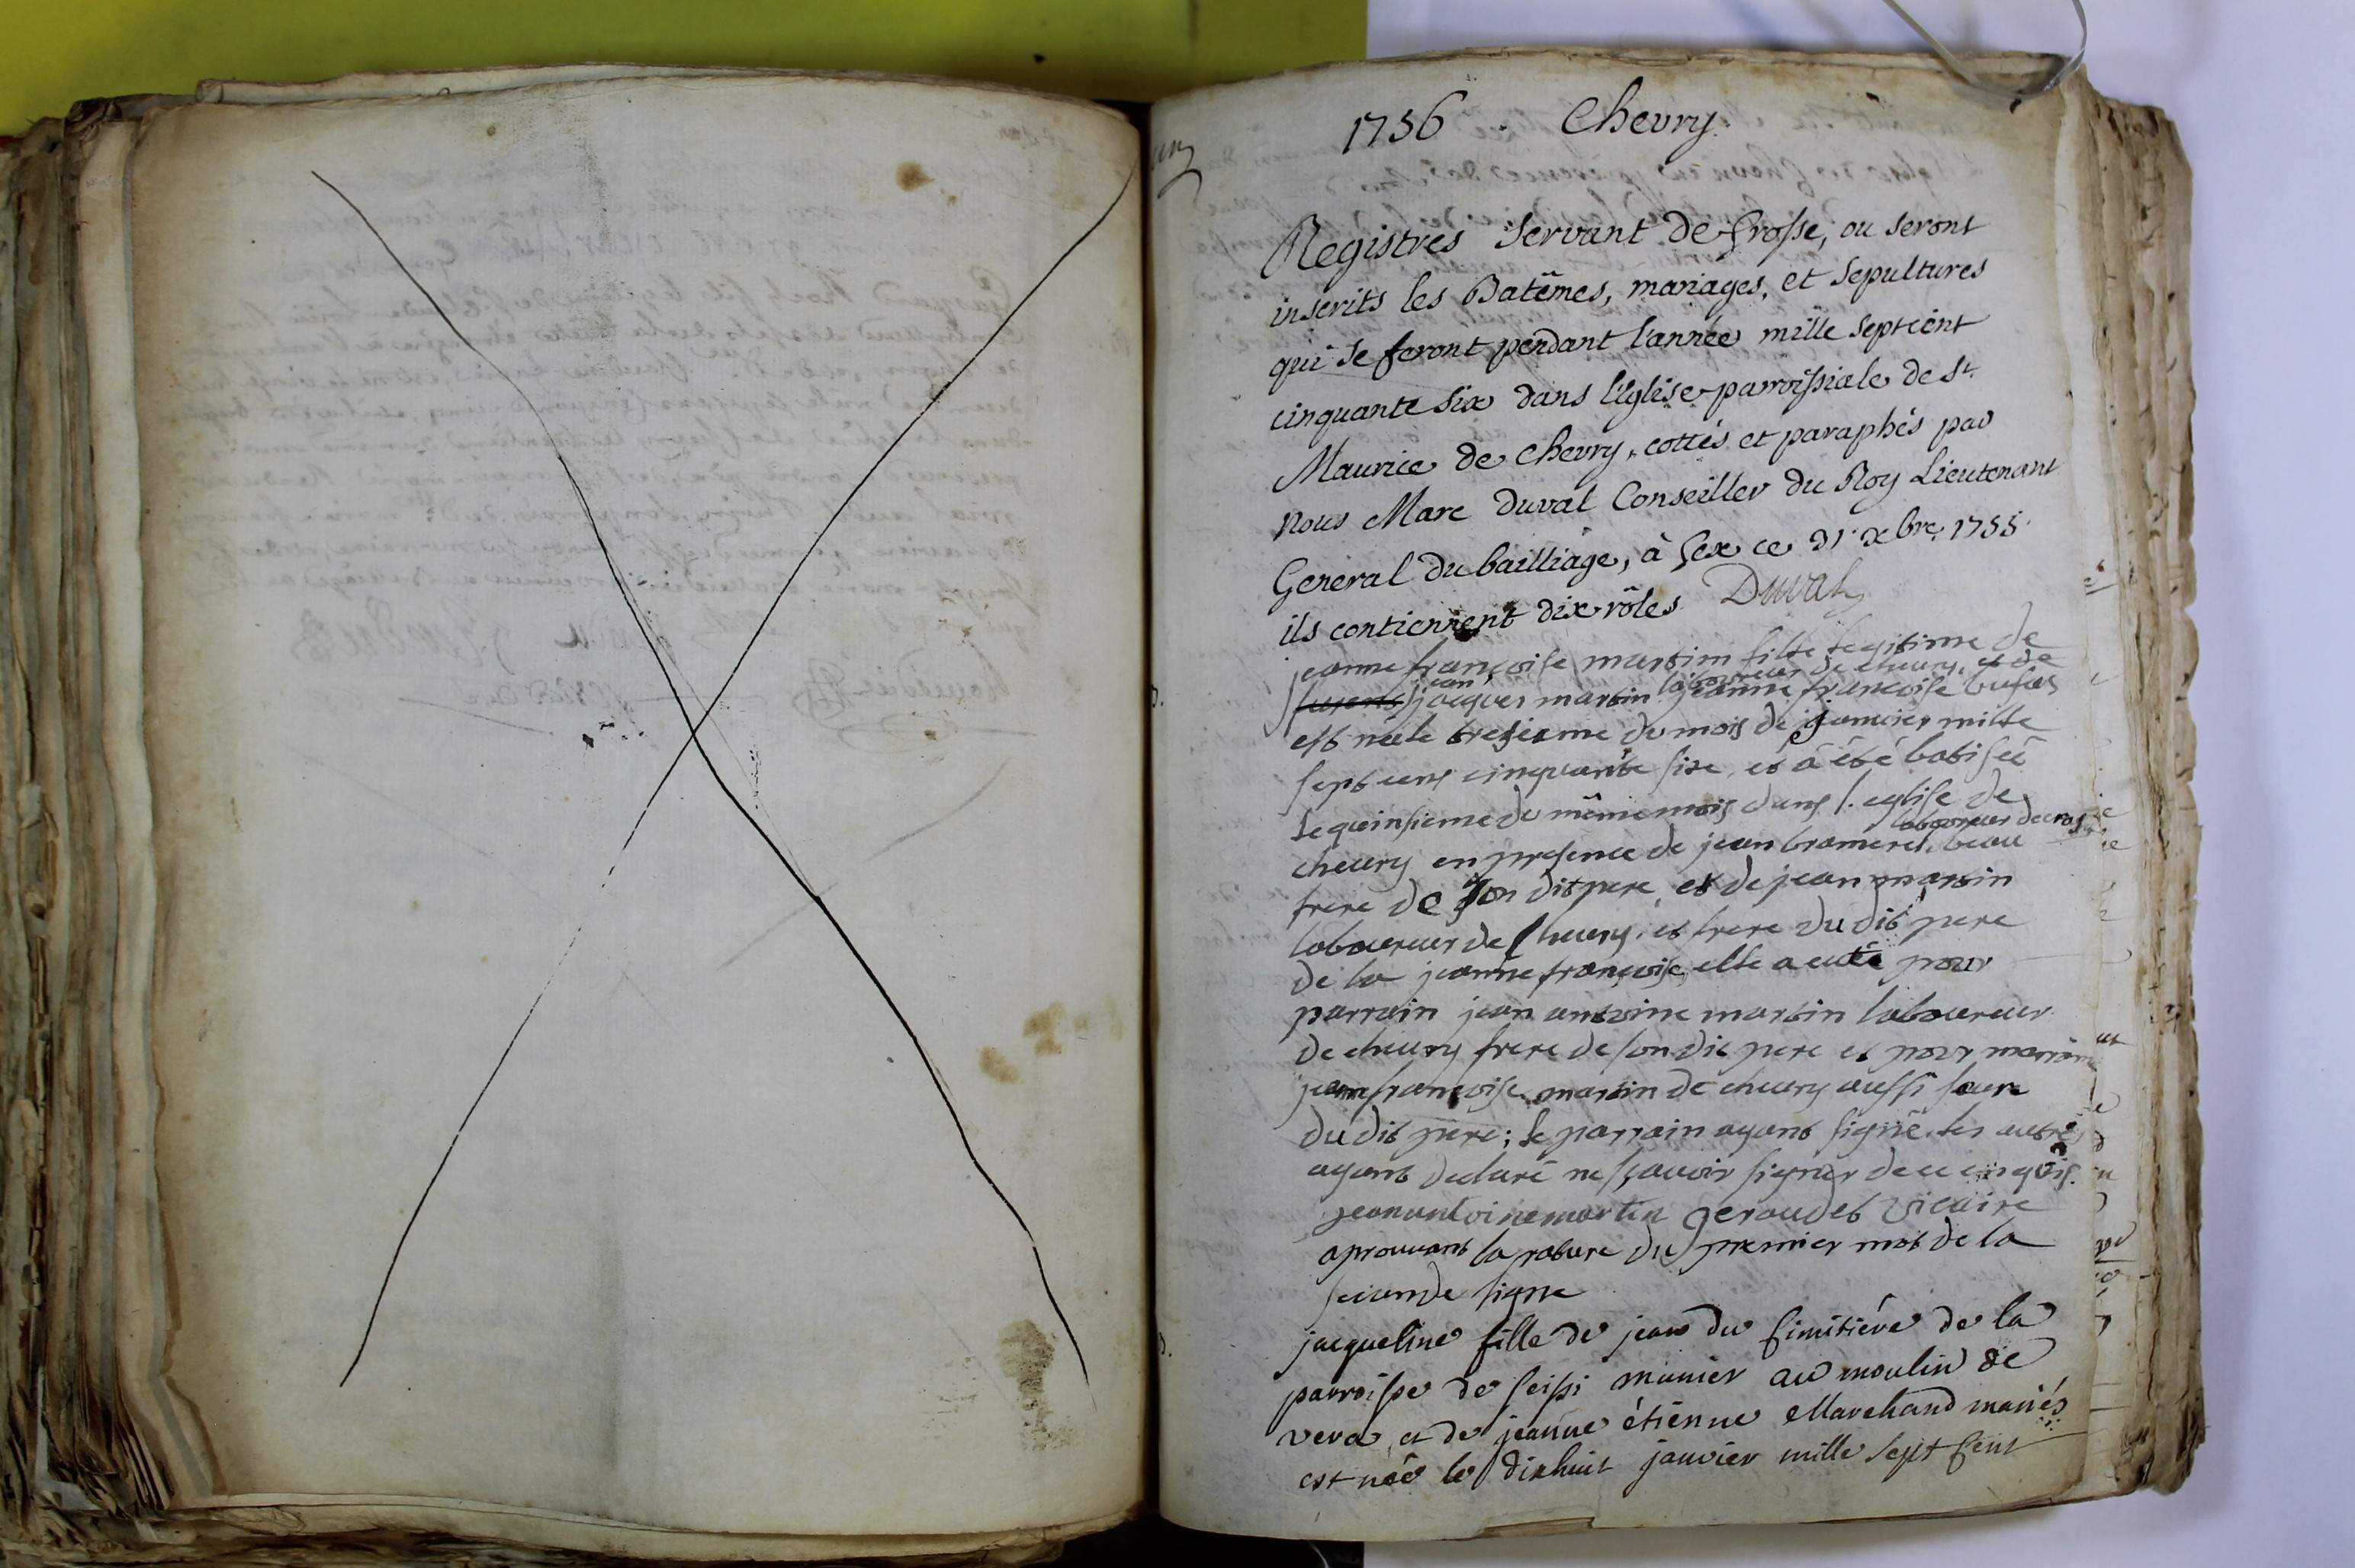 1756 . Chevry
Registres servant de Grosse, ou seront
inscrits les Batêmes, mariages, et sepultures
qui se feront pendant l'année mille septcent
cinquante six dans l'Eglise parroissiale de St
Maurice de Chevry, cottés et paraphés par
nous Marc Duval Conseiller du Roy Lieutenant
General du bailliage, à Gex ce 31 xbre 1755
ils contiennent dix rôles Duval
jeanne françoise martin fille legitime de
jean laboureur de chevry, et de
jacques martin jeanne françoise
est neele tresieme du mois de janvier mille
sept cens cinquante six, et a été batisée
le quinsieme du même mois dans l'eglise de
laboureur de
chevry en presence de jean brameret, beau
frere de son dit pere, et de jean martin
laboureur de Chevry, et frere du dit pere
de la jeanne françoise, elle a eu pour
parrain jean antoine martin laboureur
de chevry frere de son dit pere et pour marraine
jeanne françoise martin de chevry aussi soeure
du dit pere; le parrain ayant signé, les autres
ayant declaré ne sçavoir signer de ce enquis.
jean antoine martin Geroudet vicaire
aprouvant la rature du premier mot de la
seconde ligne
jacqueline fille de jean du Cimitiére de la
parroisse de Seissi munier au moulin de
vera et de jeanne étienne Marchand mariés
est née le dixhuit janvier mille sept Cent